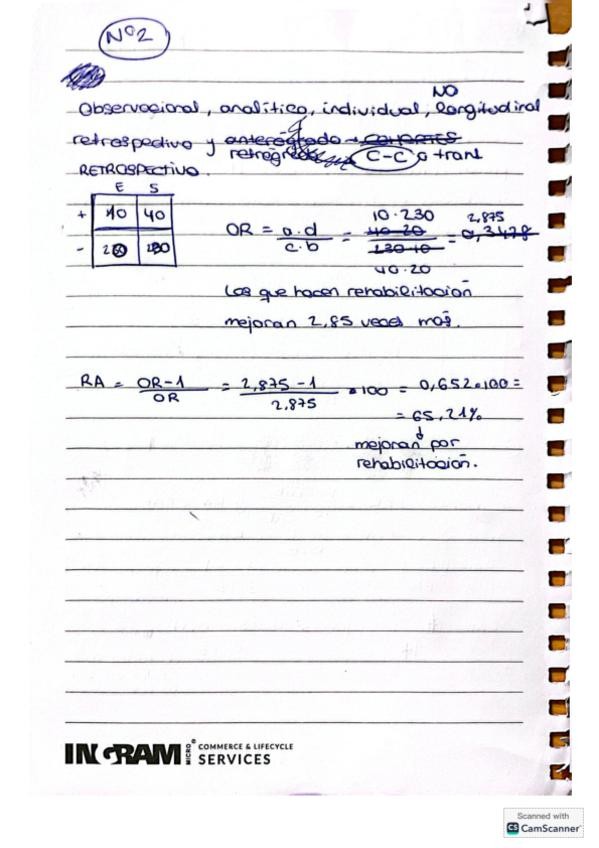 Nº2
NO
Observacional, analítico, individual, longitudinal
retrospectivo y anterógrado → COHORTES
retrógrado C-C o tranl
RETROSPECTIVO.
E S
+ 10 40
- 20 230
OR = a.d / c.b = 10.230 / 40.20 = 2,875
40.20 / 230.10 = 0,3478
Los que hacen rehabilitación
mejoran 2,85 veces más.
RA = OR-1 / OR = 2,875-1 / 2,875 • 100 = 0,652•100 =
= 65,21%
mejoran por
rehabilitación.
INGRAM MICRO® COMMERCE & LIFECYCLE
SERVICES
Scanned with
CS CamScanner